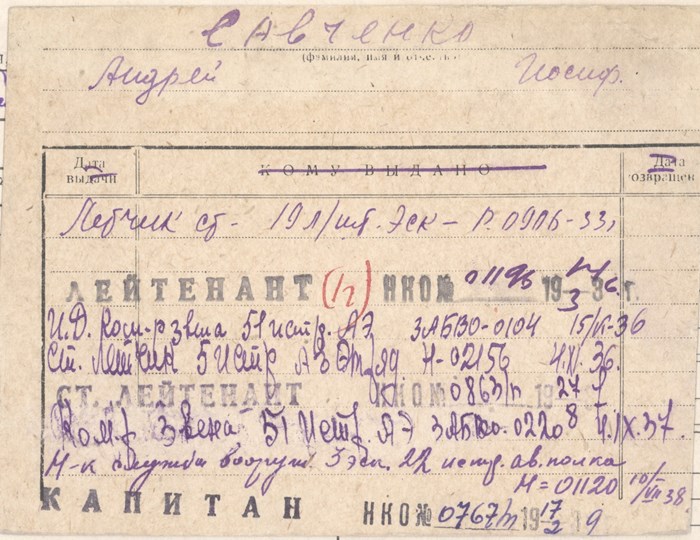 Савченко
(фамилия, имя и отчество)
Андрей Иосиф.
Дата выдачи КОМУ ВЫДАНО Дата возвращен
Летчик ст- 19 л/шт. Эск - Р. 09ПБ-33г
ЛЕЙТЕНАНТ (1/2) НКО№ 01196 19 3 36 г.
И.Д. Ком-ра звена 51 истр. АЭ ЗАБВО-0104 15/VI-36
Ст. Летчик 51 истр АЭ Н-02156 4.XI.36.
СТ. ЛЕЙТЕНАНТ НКО№ 0863/п 19 27
Ком-р Звена 51 Истр. АЭ ЗАБВО. 0220 8.IX.37.
Н-к службы вооруж. 3 эск. 22 истр. ав. полка
Н=01120 10/VII 38
КАПИТАН НКО№ 0767/п 19 17/2 9